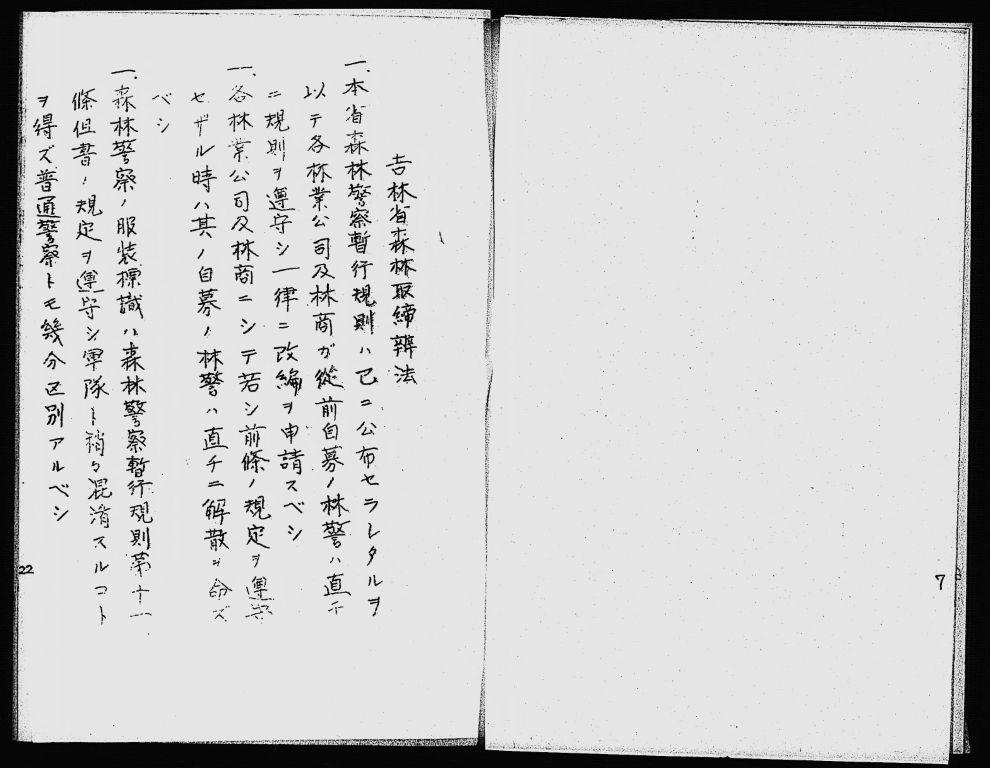 7
吉林省森林取締辨法
一、本省森林警察暫行規則ハ已ニ公布セラレタルヲ
以テ各林業公司及林商ガ從前自募ノ林警ハ直チ
ニ規則ヲ遵守シ一律ニ改編ヲ申請スベシ
一、各林業公司及林商ニシテ若シ前條ノ規定ヲ遵守
セザル時ハ其ノ自募ノ林警ハ直チニ解散ヲ命ズ
ベシ
一、森林警察ノ服装標識ハ森林警察暫行規則第十一
條但書ノ規定ヲ遵守シ軍隊ト稍々混淆スルコト
ヲ得ズ普通警察トモ幾分区別アルベシ
22